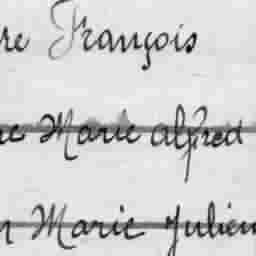 re François
Marie alfred
Marie Julien